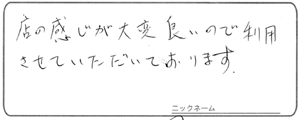 店の感じが大変良いので利用
させていただいております。
ニックネーム